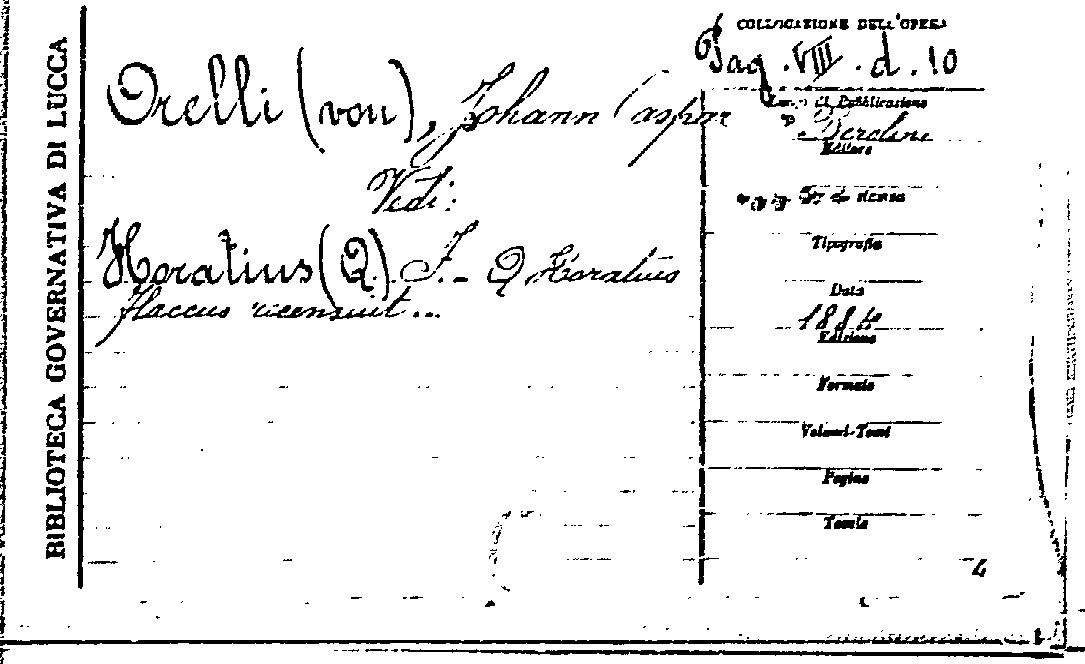 BIBLIOTECA GOVERNATIVA DI LUCCA
COLLOCAZIONE DELL'OPERA
Pag. VIII. d. 10
Orelli (von), Johann Caspar
Vedi:
Horatius (Q) F. - Q Horatius
flaccus recensuit...
Luogo di Pubblicazione
Berolini
Editore
Tipografia
Data
1884
Edizione
Formato
Volumi-Tomi
Pagine
Tavole
4